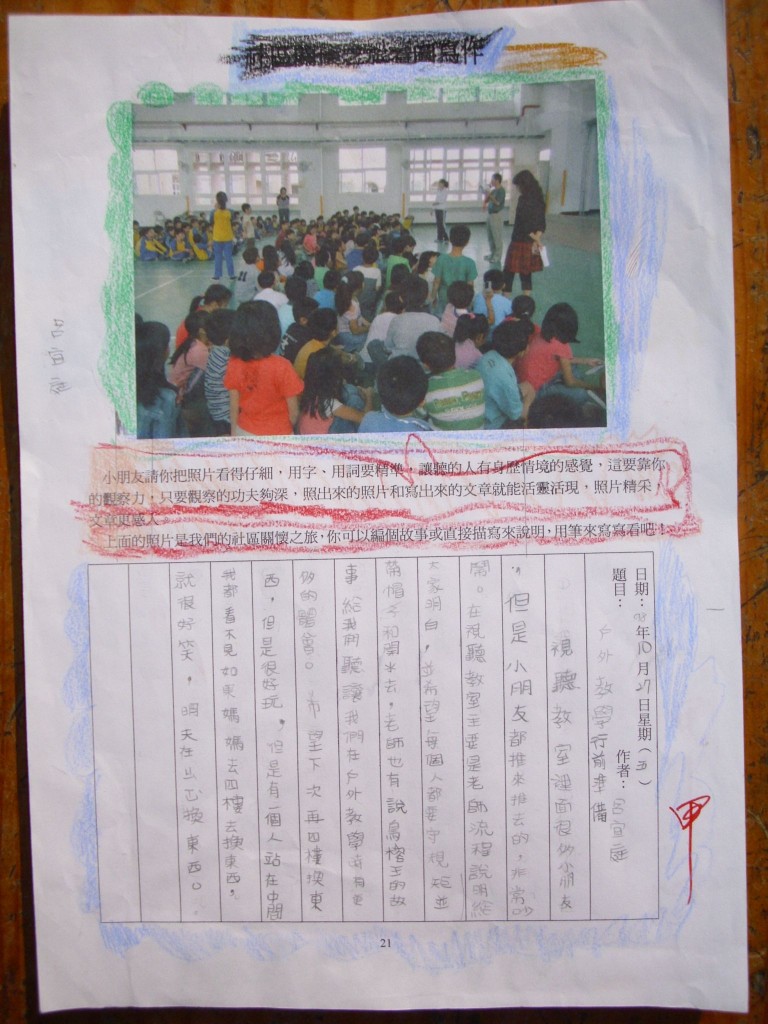 看圖寫作
小朋友請你把照片看得仔細，用字、用詞要精準，讓聽的人有身歷情境的感覺，這要靠你
的觀察力，只要觀察的功夫夠深，照出來的照片和寫出來的文章就能活靈活現，照片精采，
文章更感人。
上面的照片是我們的社區關懷之旅，你可以編個故事或直接描寫來說明，用筆來寫寫看吧！
日期： 年10月27日星期（五）
題目：戶外教學行前準備 作者：呂宜庭
視聽教室裡面很多小朋友
，但是小朋友都推來推去的，非常吵
鬧。在視聽教室主要是老師流程說明給
大家明白，並希望每個人都要守規矩並
帶帽子和開水去，老師也有說烏榕王的故
事給我們聽讓我們在戶外教學有更
多的體會。希望下次再四樓換東
西，但是很好玩，但是有一個人站在中間
我都看不見如果媽媽去四樓去換東西，
就很好笑，明天在 換東西。
甲
21